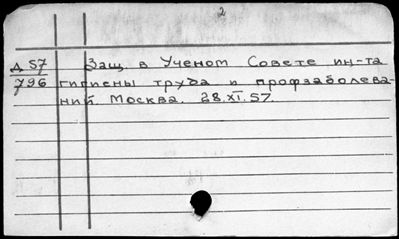 2
Д 57 Защ. в Ученом Совете ин-та
796 гигиены труда и профзаболева-
ний. Москва. 28.XI.57.